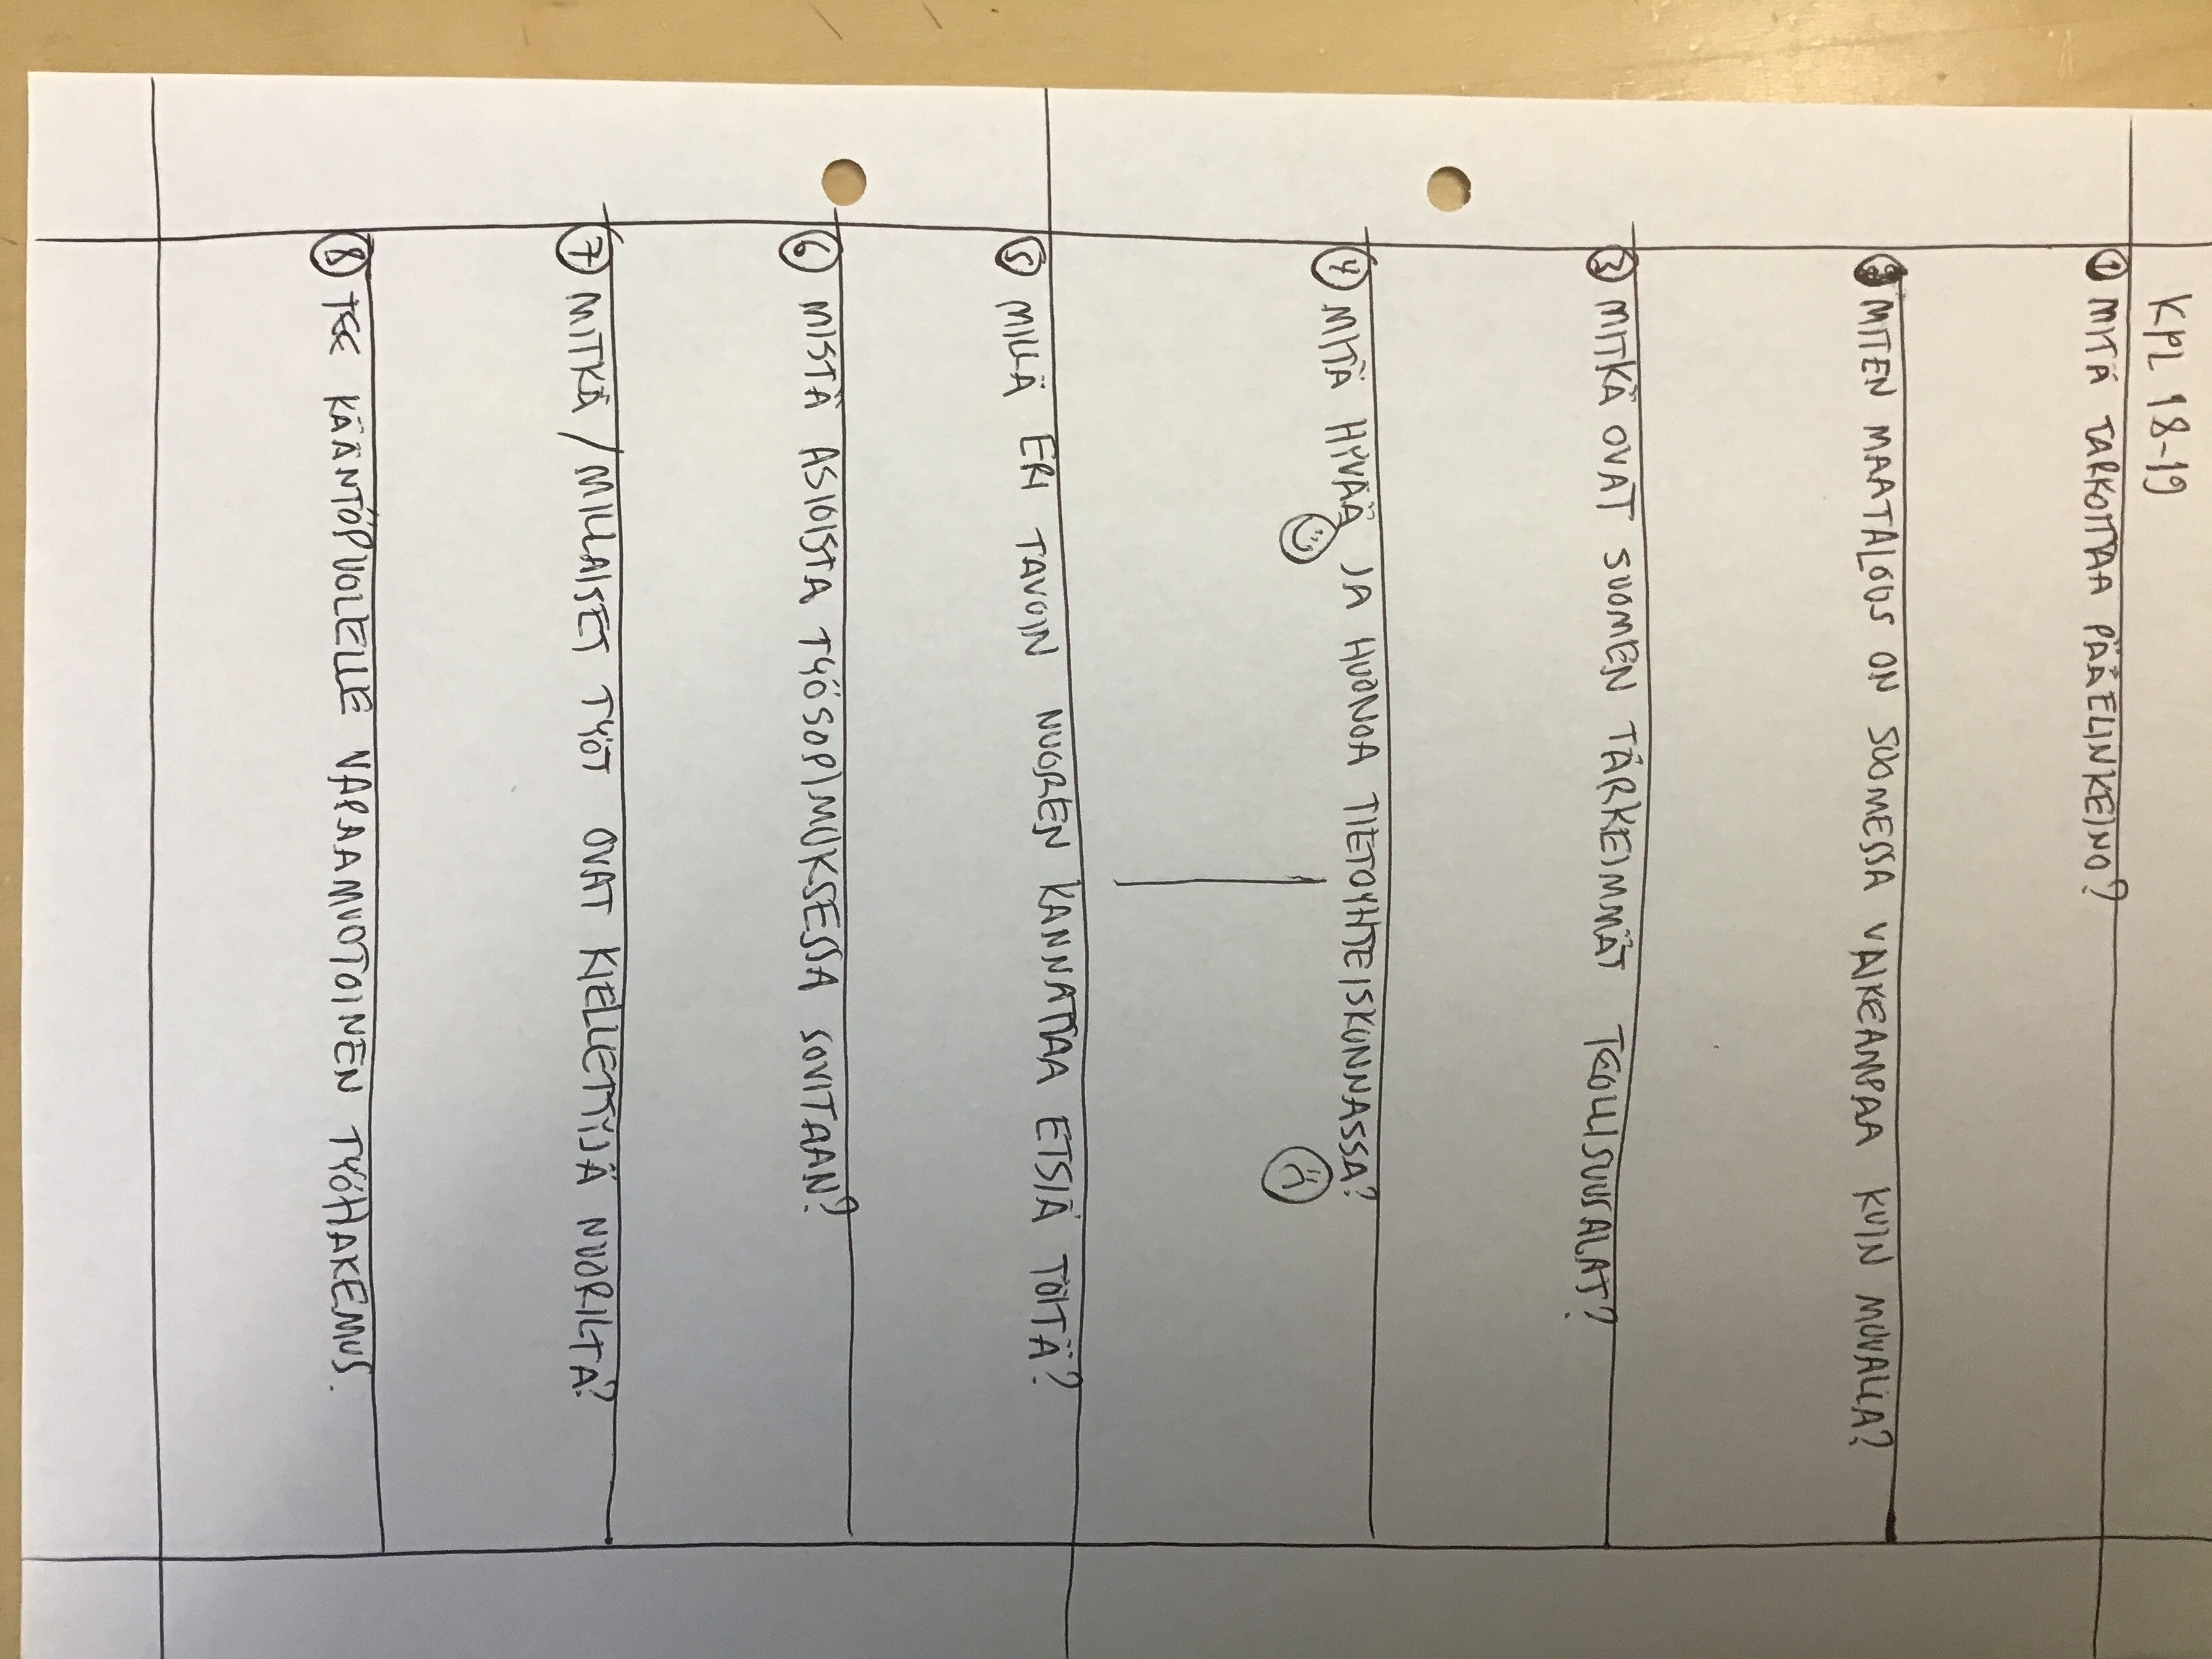 KPL 18-19
1 MITÄ TARKOITTAA PÄÄELINKEINO?
2 MITEN MAATALOUS ON SUOMESSA VAIKEAMPAA KUIN MUUALLA?
3 MITKÄ OVAT SUOMEN TÄRKEIMMÄT TEOLLISUUSALAT?
4 MITÄ HYVÄÄ JA HUONOA TIETOYHTEISKUNNASSA?
5 MILLÄ ERI TAVOIN NUOREN KANNATTAA ETSIÄ TÖITÄ?
6 MISTÄ ASIOISTA TYÖSOPIMUKSESSA SOVITAAN?
7 MITKÄ/MILLAISET TYÖT OVAT KIELLETTYJÄ NUORILTA?
8 TEE KÄÄNTÖPUOLELLE VAPAAMUOTOINEN TYÖHAKEMUS.